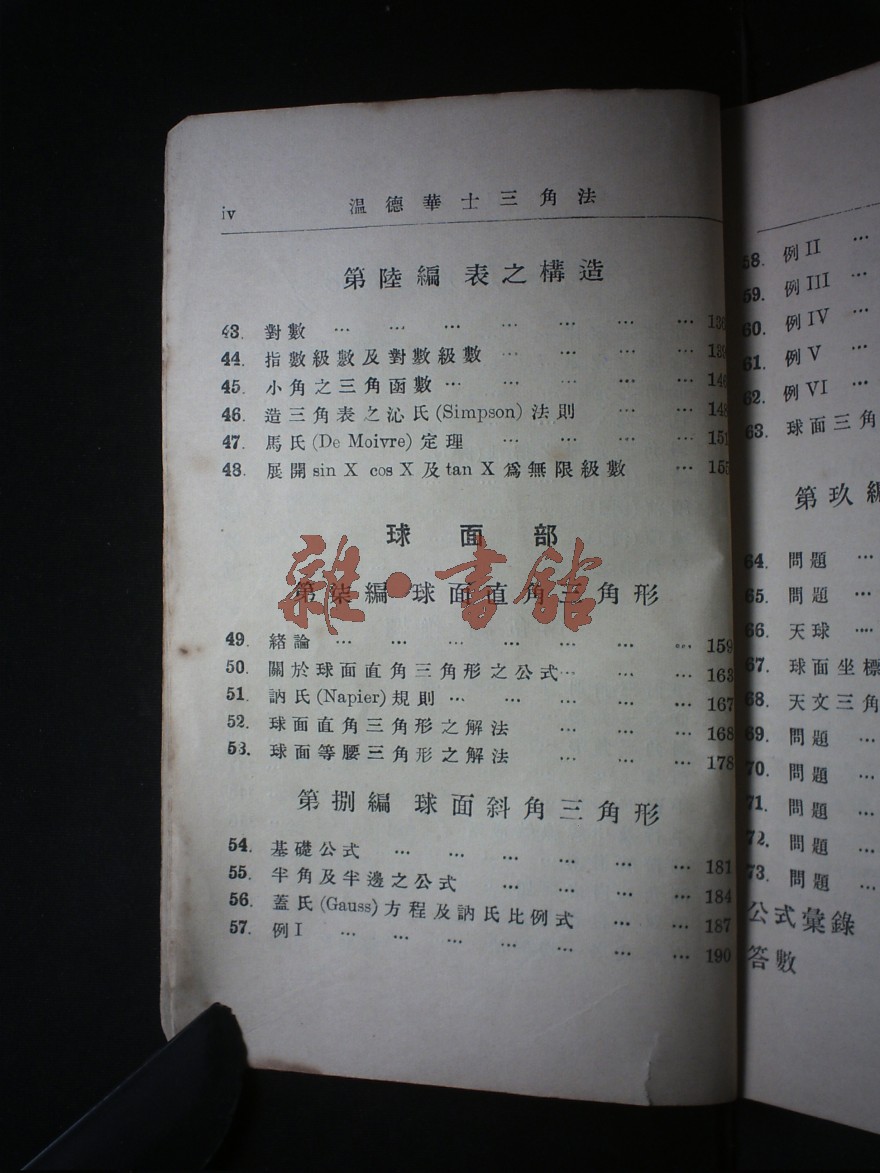 iv 溫德華士三角法
第陸編 表之構造
43. 對數 … … … … … … …
44. 指數級數及對數級數 … … … …
45. 小角之三角函數 … … … … …
46. 造三角表之沁氏(Simpson)法則 … …
47. 馬氏(De Moivre)定理 … … … … 151
48. 展開 sin X cos X 及 tan X 爲無限級數 …
球面部
雜·書館
第柒編 球面直角三角形
49. 緒論 … … … … … … … 159
50. 關於球面直角三角形之公式 … … … 163
51. 訥氏(Napier)規則 … … … … … 167
52. 球面直角三角形之解法 … … … 168
53. 球面等腰三角形之解法 … … … 178
第捌編 球面斜角三角形
54. 基礎公式 … … … … … … 181
55. 半角及半邊之公式 … … … … 184
56. 蓋氏(Gauss)方程及訥氏比例式 … … 187
57. 例 I … … … … … … … 190
58. 例 II …
59. 例 III …
60. 例 IV …
61. 例 V …
62. 例 VI …
63. 球面三角
第玖編
64. 問題 …
65. 問題 …
66. 天球 …
67. 球面坐標
68. 天文三角
69. 問題 …
70. 問題 …
71. 問題 …
72. 問題 …
73. 問題 …
公式彙錄
答數